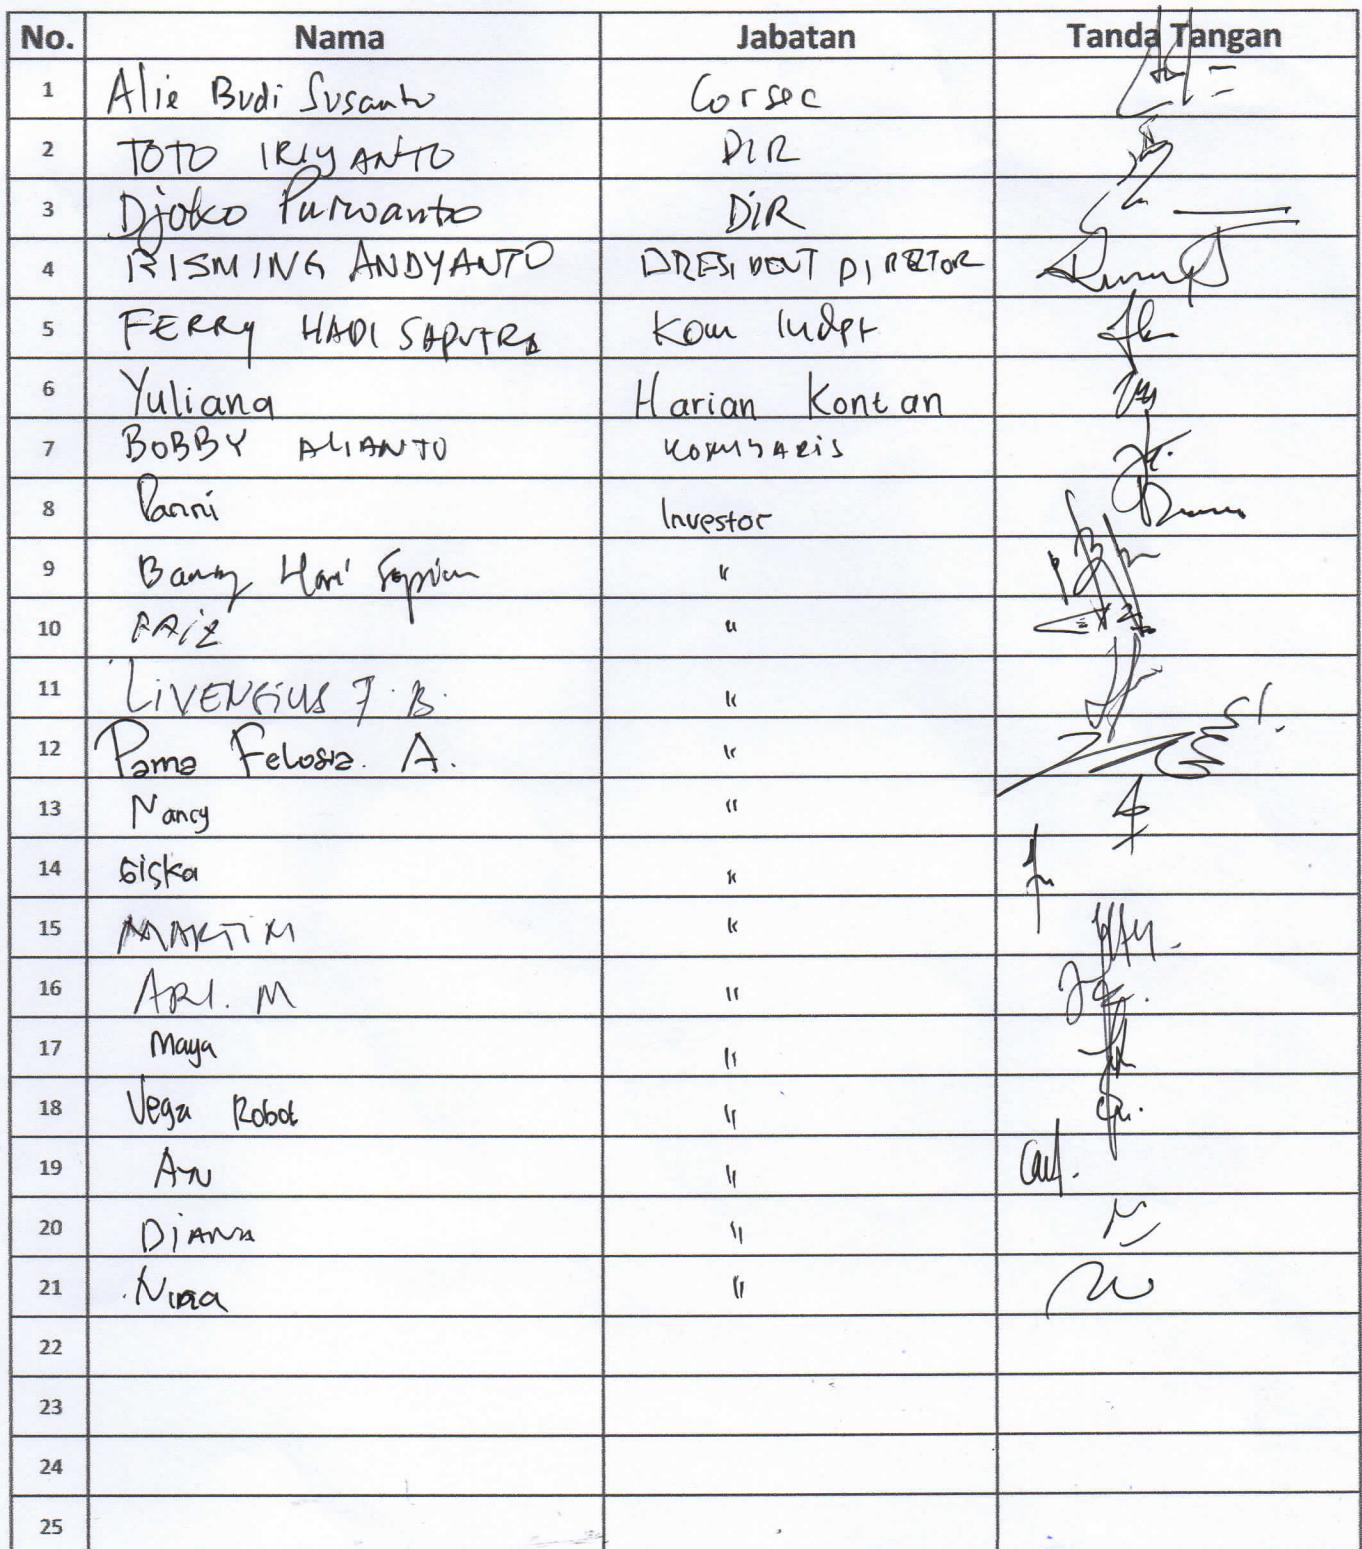 No. Nama Jabatan Tanda Tangan
1 Alie Budi Susanto Corsec
2 TOTO IRIYANTO DIR
3 Djoko Purwanto DIR
4 RISMING ANDYANTO PRESIDENT DIREKTOR
5 FERRY HADI SAPUTRA Kom Indpt
6 Yuliana Harian Kontan
7 BOBBY ALIANTO KOMISARIS
8 Investor
9 Hari "
10 FAIZ "
11 LIVENSIUS F. B. "
12 Pama Felosia. A. "
13 Nancy "
14 Siska "
15 MARTIN "
16 ARI. M "
17 Maya "
18 Vega Robot "
19 "
20 Diana "
21 "
22
23
24
25